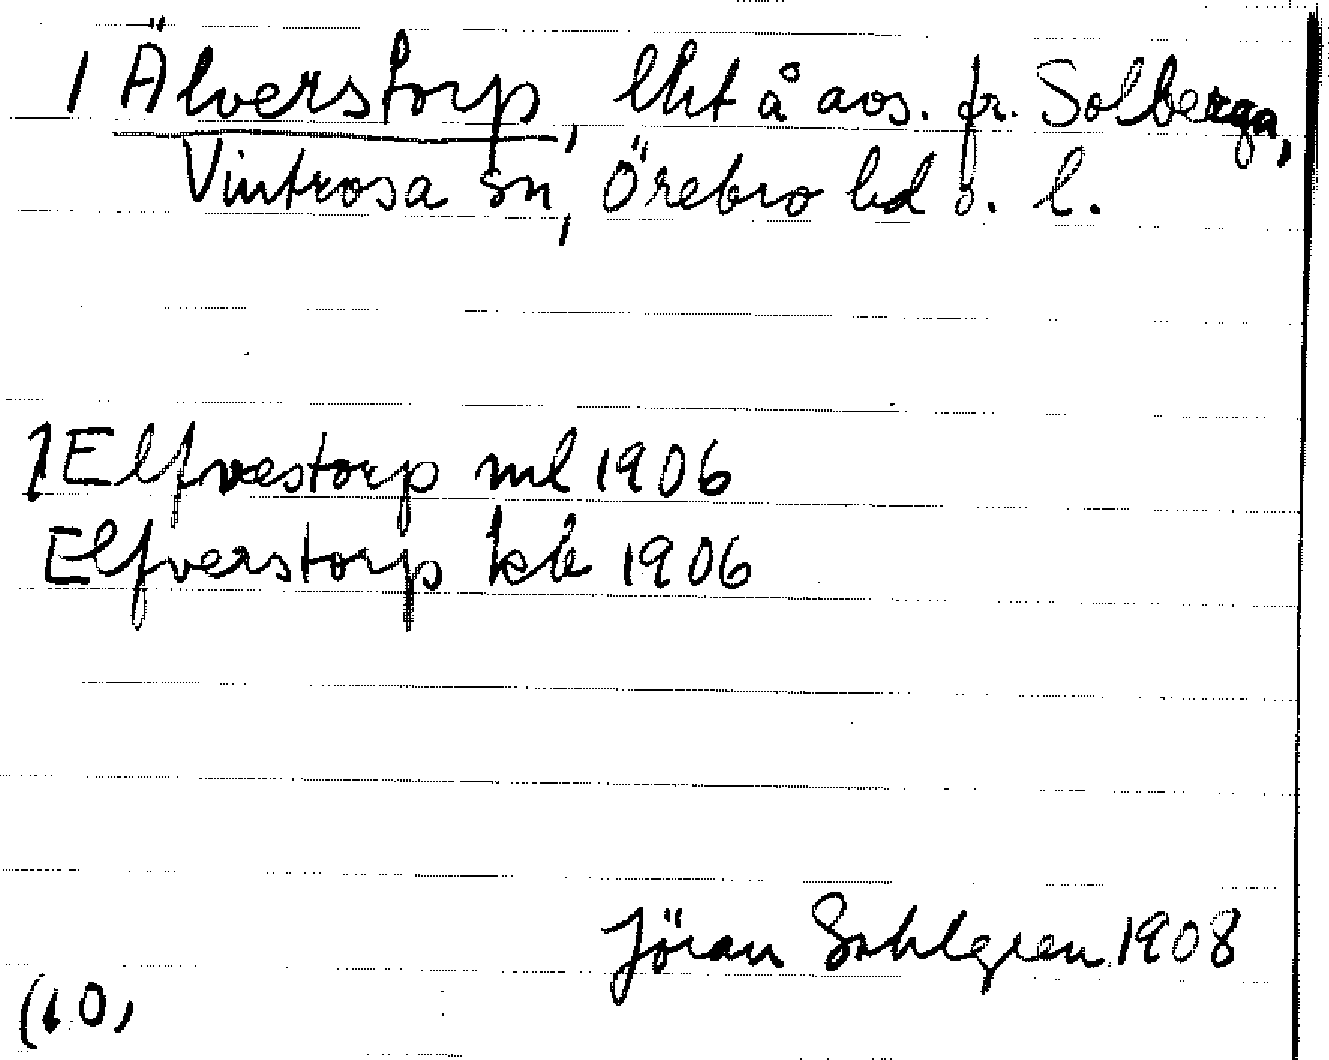 1 Älverstorp, lht å avs. fr. Solberga,
Vintrosa sn, Örebro hd ö. l.
1 Elfvestorp ml 1906
Elfverstorp kb 1906
Jöran Sahlgren 1908